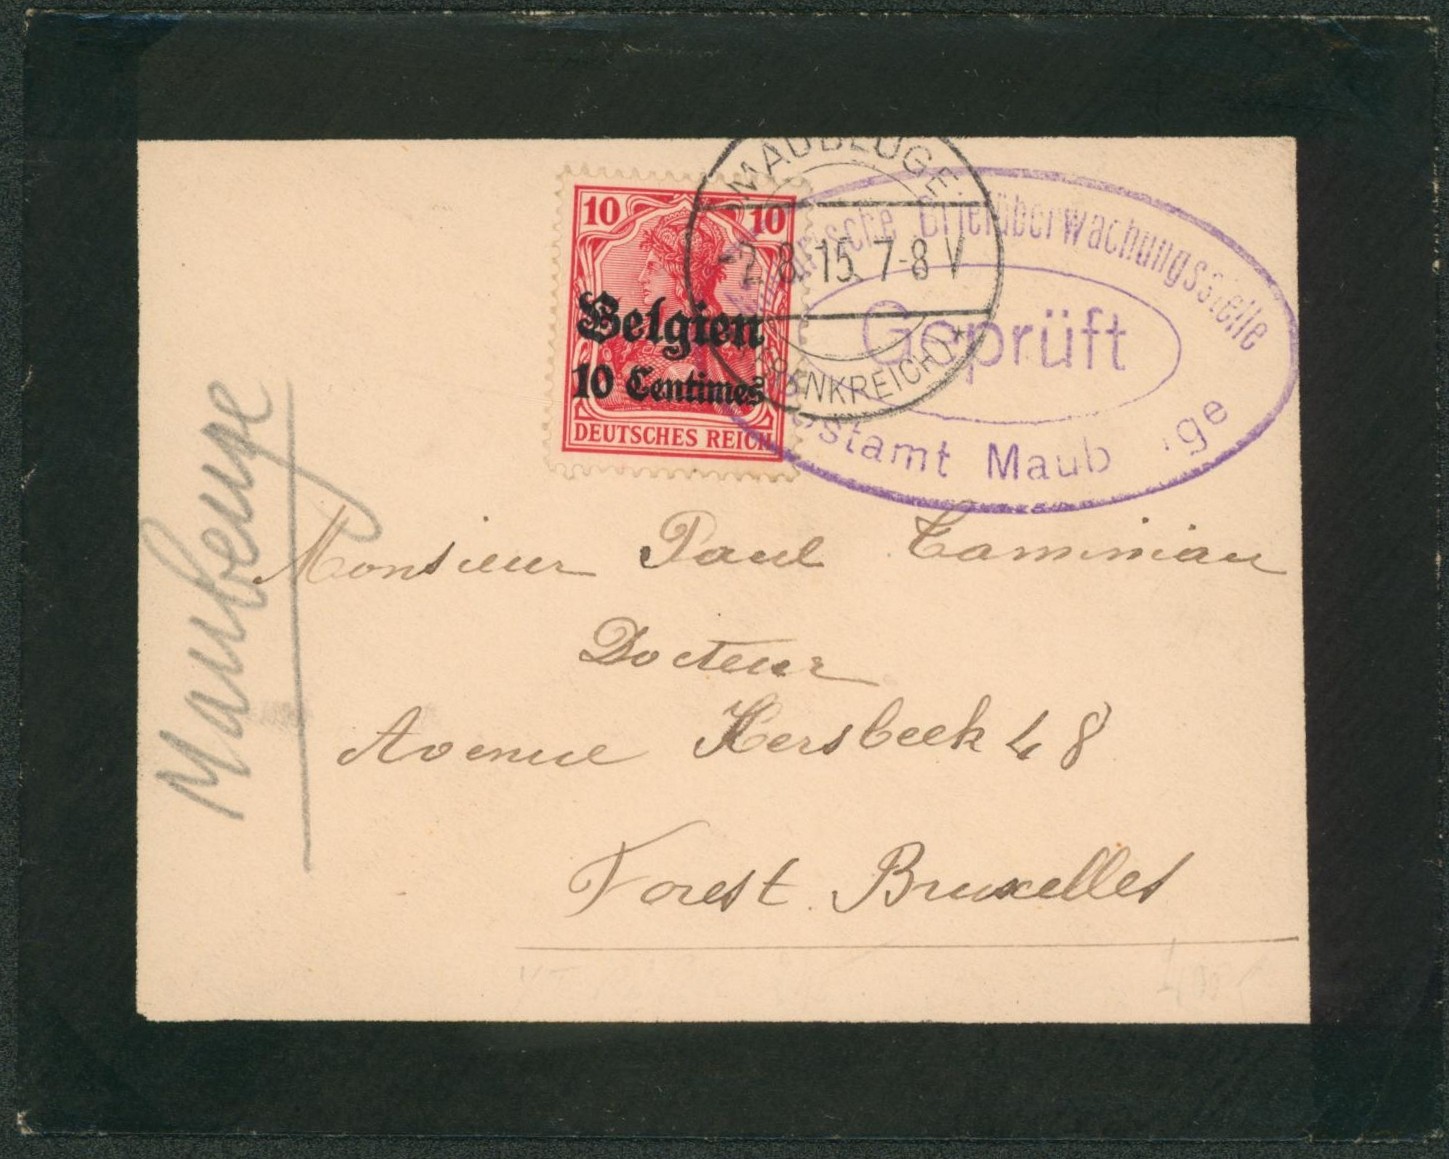 10 10
Belgien
10 Centimes
DEUTSCHES REICH
MAUBEUGE
2.8.15. 7-8 V
Briefüberwachungsstelle
Geprüft
Maubeuge
Monsieur Paul
Docteur
Avenue Kersbeek 48
Forest Bruxelles